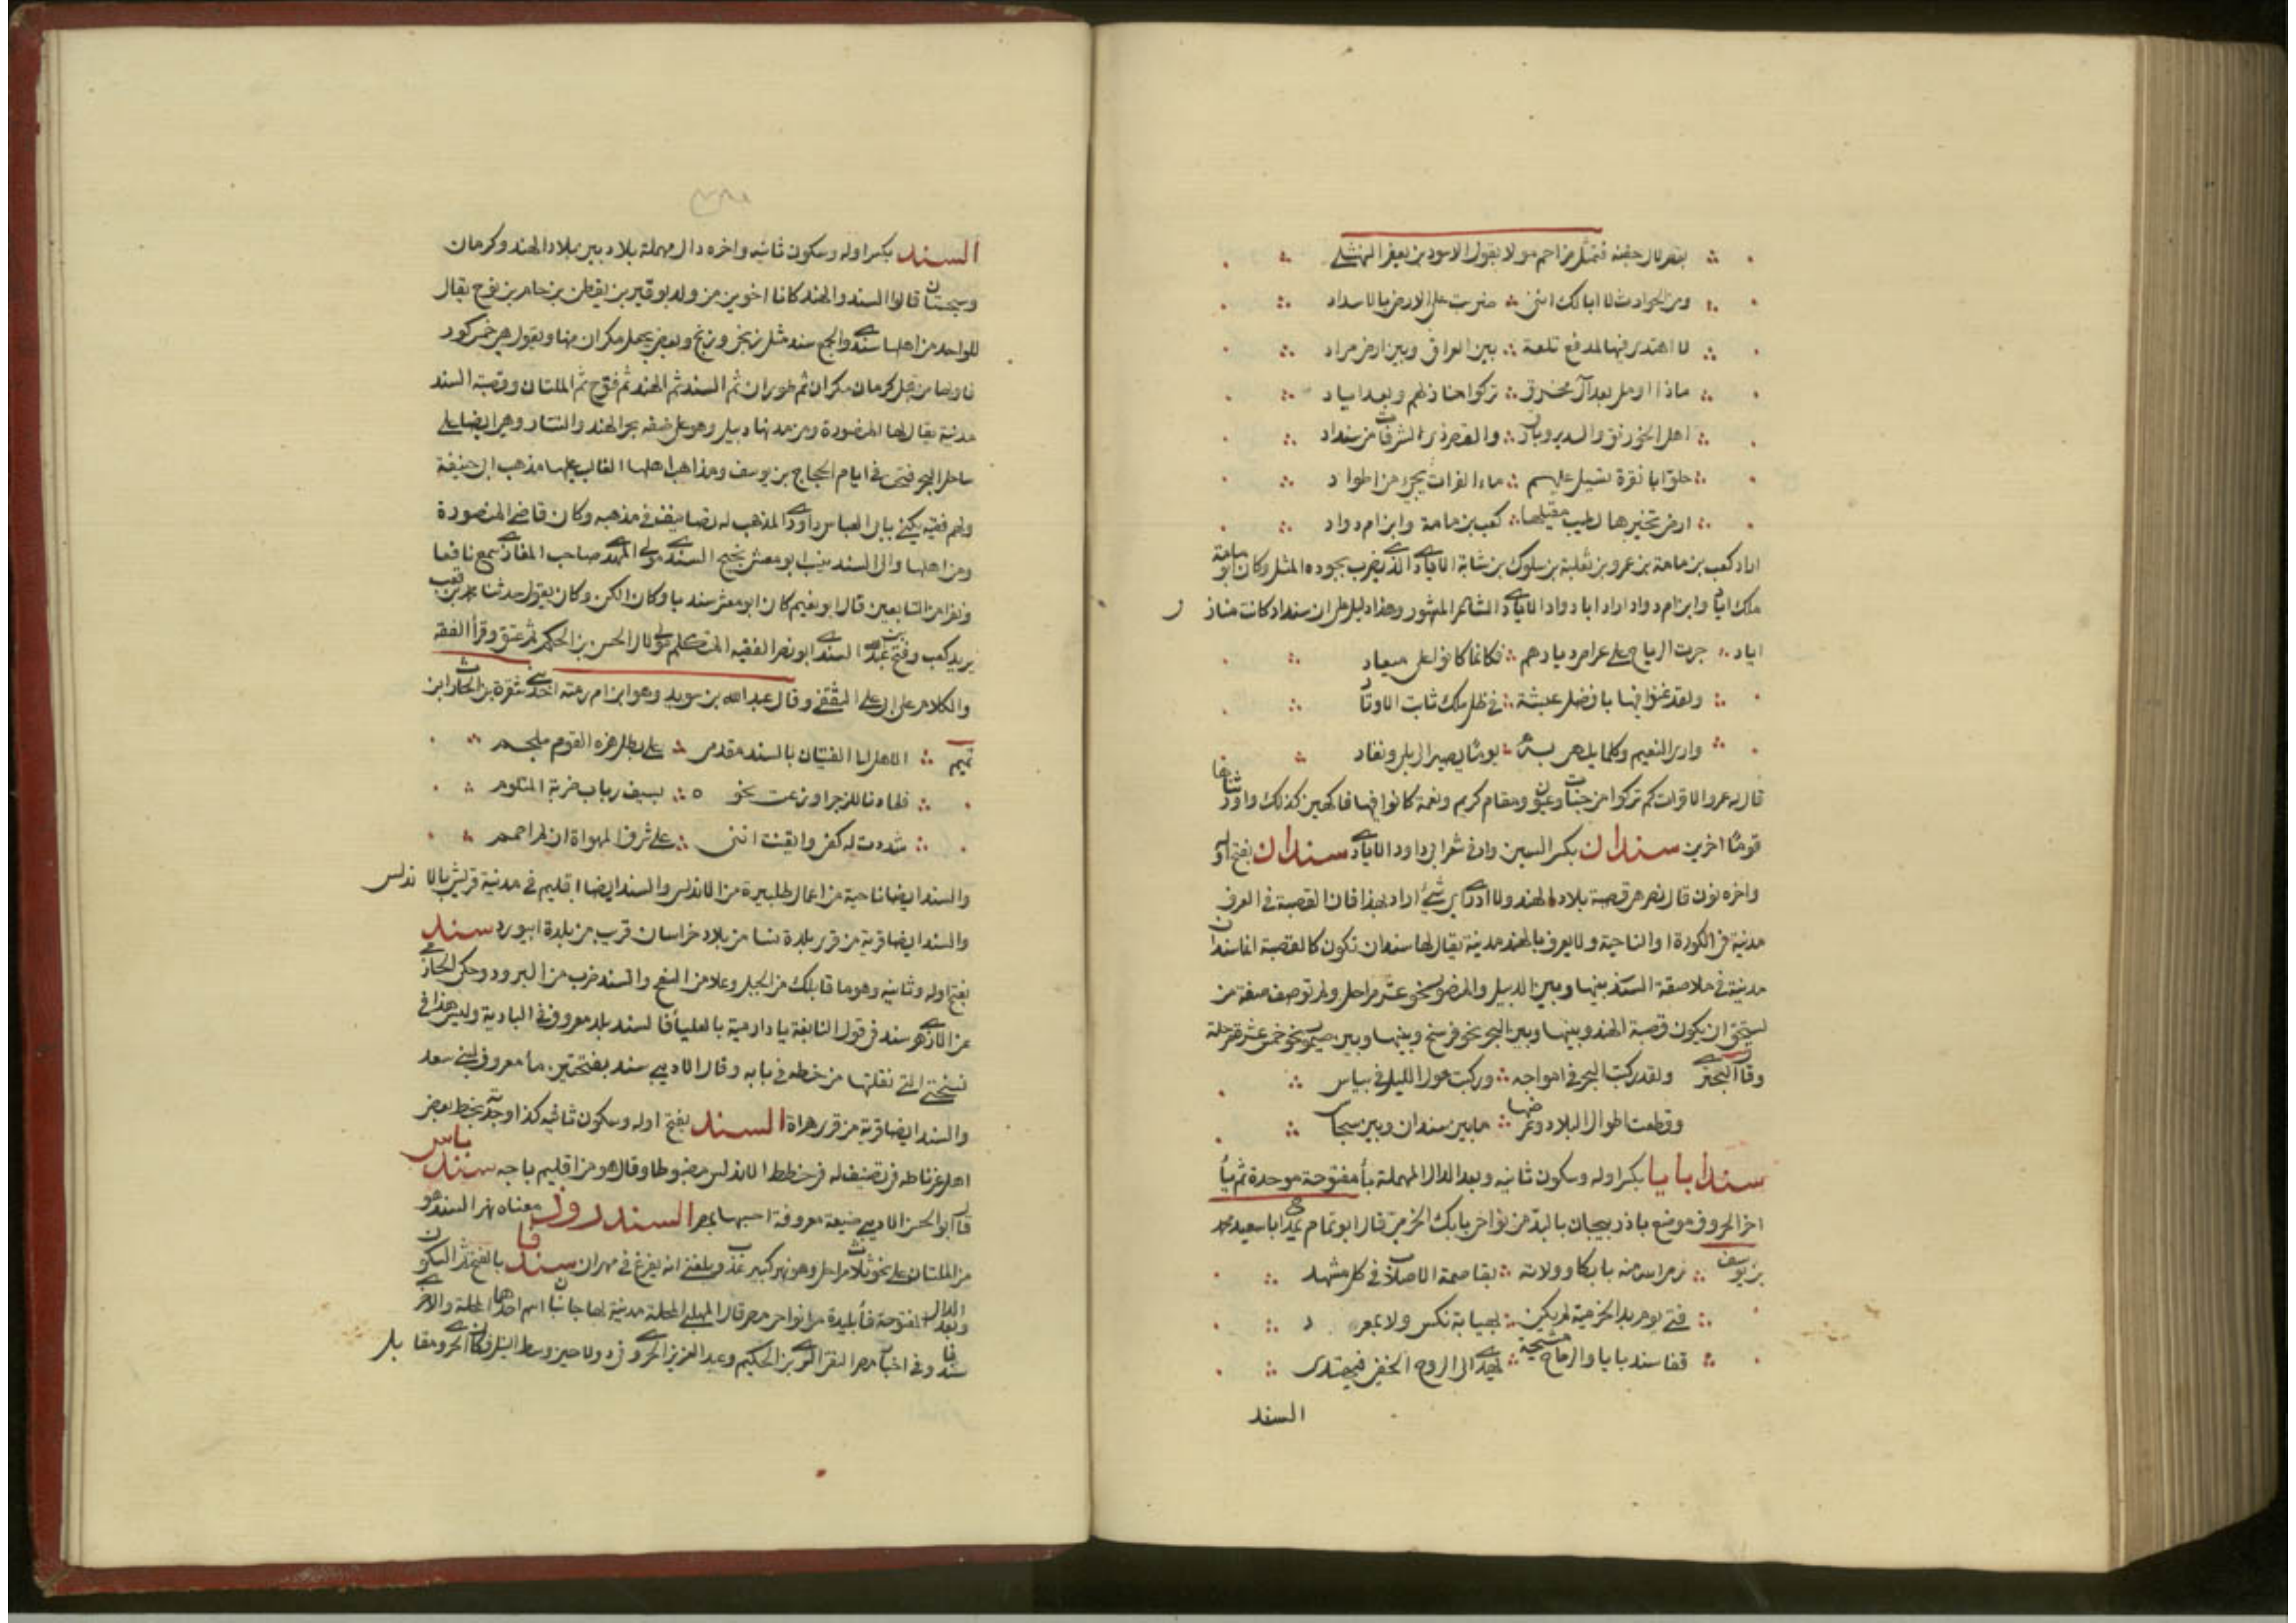 بقصر ال جفنه فتمثل مزاحم مولاه بقول الاسود بن يعفر النهشلي
ومن الحوادث لا ابا لك اننى ضربت على الارض بالاسداد
لا اهتدى فيها لمدفع تلعة بين العراق وبين ارض مراد
ماذا اومل بعد آل محرق تركوا منازلهم وبعد اياد
اهل الخورنق والسدير وبارق والقصر ذى الشرفات من سنداد
حلوا بانقرة تسيل عليهم ماء الفرات يجىء من اطواد
ارض تخيرها لطيب مقيلها كعب بن مامة وابن ام دواد
اراد كعب بن مامة بن عمرو بن ثعلبة بن سلوك بن شبابة الايادى الذى يضرب بجوده المثل وكان ابوه مامة
ملك اياد وابن ام دواد اراد ابا دواد الايادى الشاعر المشهور وهذا دليل على ان سنداد كانت مناز ل
اياد جرت الرياح على عراص ديارهم فكانما كانوا على ميعاد
ولقد غنوا فيها بافضل عيشة فى ظل ملك ثابت الاوتاد
وارى النعيم وكلما يلهى به يوما يصير الى بلى ونفاد
قال له عمر والا قرات كم تركوا من جنات وعيون ومقام كريم ونعمة كانوا فيها فاكهين كذلك واورثناها
قوما اخرين سندان بكسر السين وان فى شعر ابى داود الايادى سندان بفتح اوله
واخره نون قال نصر هى قصبة بلاد الهند ولا ادرى اى شىء اراد بهذا فان القصبة فى العرف
مدينة فى الكورة او الناحية ولا يعرف بالهند مدينة يقال لها سندان تكون كالقصبة انما سندان
مدينة فى ملاصقة السند بينها وبين الديبل والمنصورة نحو عشر مراحل ولم توصف صفة من
يستحق ان يكون قصبة الهند وبينها وبين البحر نحو فرسخ وبينها وبين صيمور نحو خمس عشرة مرحلة
وقال البحترى ولقد ركبت البحر فى امواجه وركبت هول الليل فى بياس
وقطعت اطوال البلاد وعرضها ما بين سندان وبين سجاس
سندابايا بكسر اوله وسكون ثانيه وبعد الدال المهملة بأ مفتوحة موحدة ثم يأ
اخر الحروف موضع باذربيجان بالبذ من نواحى بابك الخرمى قال ابو تمام يمدح ابا سعيد محمد
بن يوسف رمى الله منه بابكا وولاته بقاصمة الاصلاب فى كل مشهد
فتى يوم بذ الخرمية لم يكن بهيابة نكس ولا بمعر د
قفا سندبايا والرماح مشيحة تهدى الى الروح الخفى فيهتدى
السند
السند بكسر اوله وسكون ثانيه واخره دال مهملة بلاد بين بلاد الهند وكرمان
وسجستان قالوا السند والهند كانا اخوين من ولد بوقير بن يقطن بن حام بن نوح يقال
للواحد من اهلها سندى والجمع سند مثل زنجى وزنج وبعض يجعل مكران منها ويقول هى خمس كور
فاولها من قبل كرمان مكران ثم طوران ثم السند ثم الهند ثم قنوج ثم الملتان وقصبة السند
مدينة يقال لها المنصورة ومن مدنها ديبل وهو على ضفة بحر الهند والتيز وهى ايضا على
ساحل البحر فتحت فى ايام الحجاج بن يوسف ومذاهب اهلها الغالب عليها مذهب ابى حنيفة
ولهم فقيه يكنى بابى العباس داودى المذهب له تصانيف فى مذهبه وكان قاضى المنصورة
ومن اهلها والى السند ينسب ابو معشر نجيح السندى مولى المهدى صاحب المغازى سمع نافعا
ونفرا من التابعين قال ابو نعيم كان ابو معشر سنديا وكان الكن وكان يقول حدثنا محمد بن قعب
يريد كعب وفتح بن عبد الله السندى ابو نصر الفقيه المتكلم مولى لال الحسن بن الحكم ثم عتق وقرأ الفقه
والكلام على ابى على الثقفى وقال عبد الله بن سويد وهو ابن ام رمته احدى شقرة بن الحارث ابن
تميم الا هل الى الفتيان بالسند مقدمى على بطل هزه القوم ملجم
فلما دنا للزجر اوزعت نحوه بسيف ذباب ضربة المتلوم
شددت له كفى وايقنت اننى على شرف المهواة ان لم اصمم
والسند ايضا ناحية من اعمال طلبيرة من الاندلس والسند ايضا اقليم فى مدينة قريش بالا ندلس
والسند ايضا قرية من قرى بلدة نسا من بلاد خراسان قرب من بلدة ابيورد سند
بفتح اوله وثانيه وهو ما قابلك من الجبل وعلا من السفح والسند ضرب من البرود وحكى الحازمى
عن الازهرى سند فى قول النابغة يا دار مية بالعليأ فالسند بلد معروف فى البادية وليس هذا فى
نسختى التى نقلتها من خطه فى بابه وقال الاديبى سند بفتحتين ماء معروف لبنى سعد
والسند ايضا قرية من قرى هراة السند بفتح اوله وسكون ثانيه كذا وجدته بخط بعض
اهل غرناطه فى تصنيف له فى خطط الاندلس مضبوطا وقال هو من اقليم باجه سندباس
قال ابو الحسن الاديبى ضيعة معروفة احسبها بمصر السندروذ معناه نهر السند هو
من الملتان على نحو ثلاث مراحل وهو نهر كبير عذب وبلغنى انه يفرغ فى مهران سندفا بالفتح ثم السكون
وبعد الدال المفتوحة فأ بليدة من نواحى مصر قال المهلبى المحلة مدينة لها جانبان اسم احدها المحلة والاخرى
سندفا وفى اخبار مصر التقى السرى بن الحكيم وعبد العزيز الجروى فى دولاحين وسط النيل فكان الجروى مقا بل